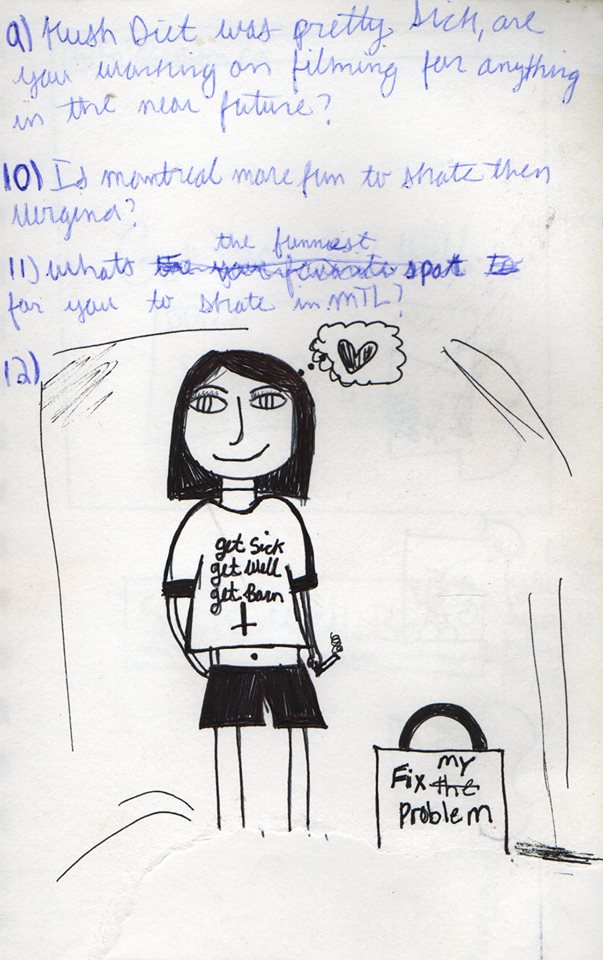 9) Kush Diet was pretty sick, are
you working on filming for anything
in the near future?
10) Is montreal more fun to skate then
Vergena?
the funniest
11) whats the your favorite spot to
for you to skate in MTL?
12)
get Sick
get Well
get Born
my
Fix the
problem